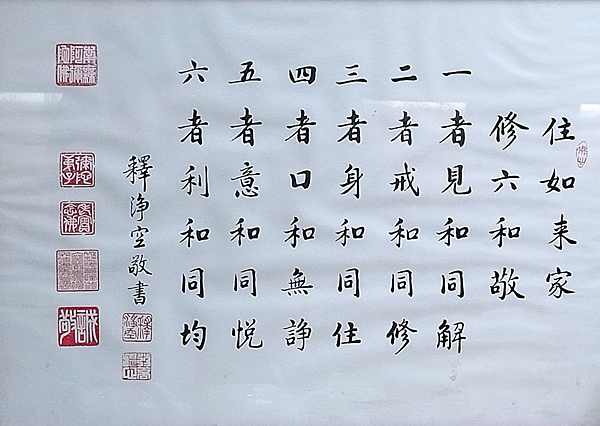 住如来家
修六和敬
一者見和同解
二者戒和同修
三者身和同住
四者口和無諍
五者意和同悦
六者利和同均
釋淨空敬書